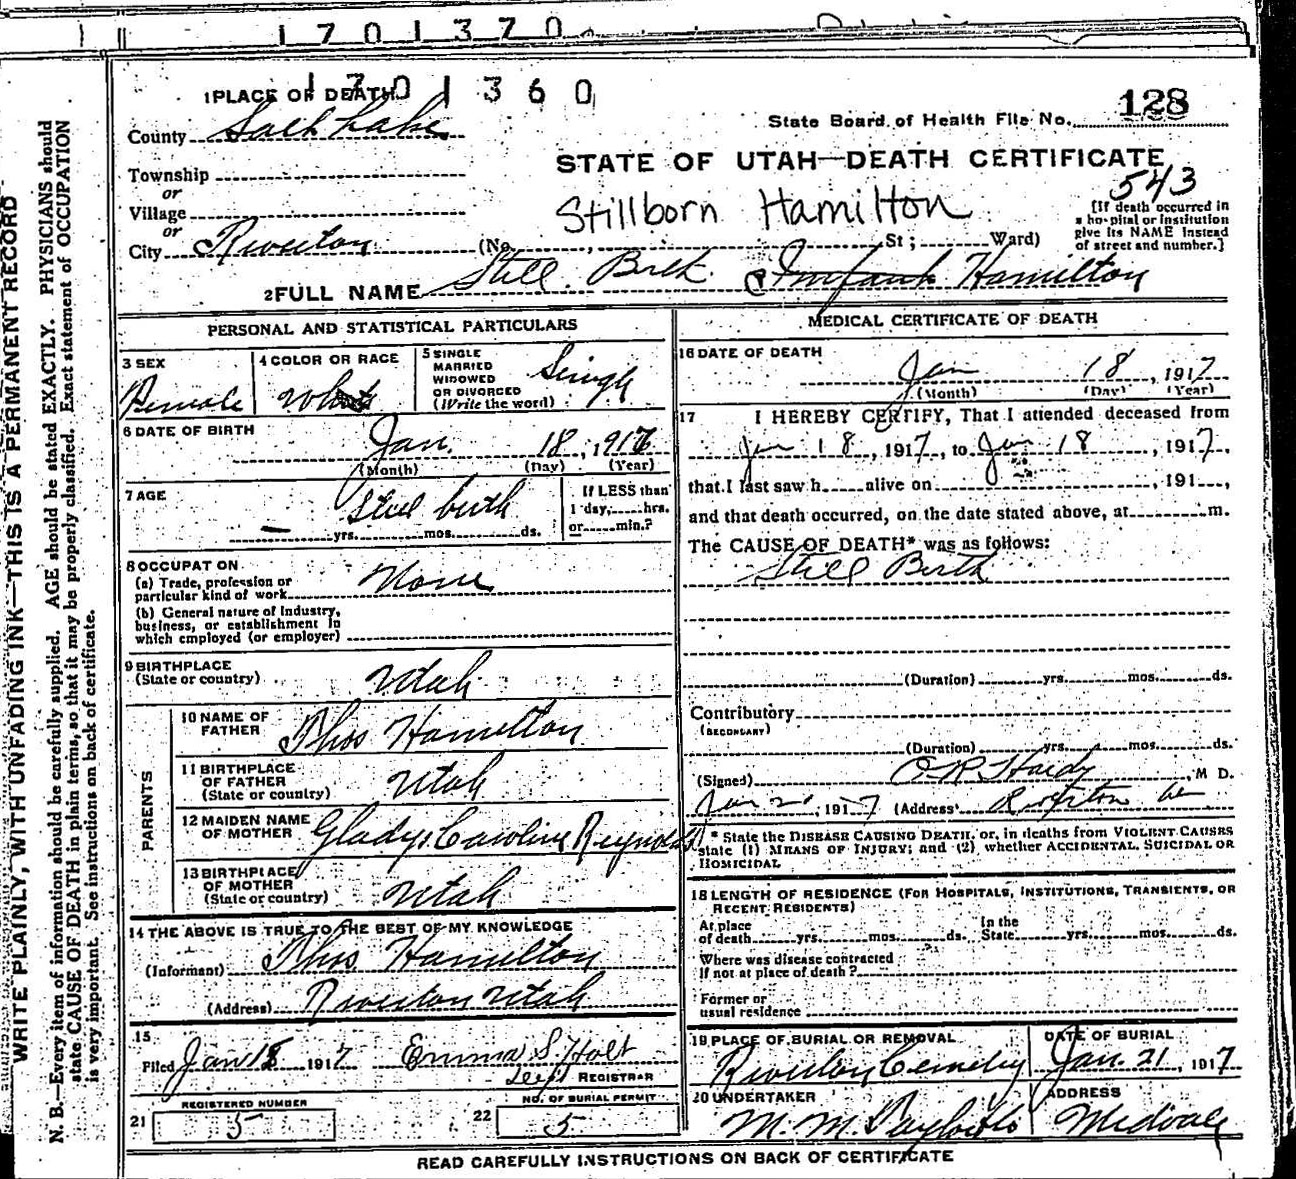 1701370
1701360
128
1 PLACE OF DEATH
State Board of Health File No.
County Salt Lake
STATE OF UTAH—DEATH CERTIFICATE
543
Township
or
Village
Stillborn Hamilton
[If death occurred in a hospital or institution give its NAME instead of street and number.]
or
City Riverton (No. St; Ward)
2 FULL NAME Still Birth Infant Hamilton
PERSONAL AND STATISTICAL PARTICULARS
3 SEX
Female
4 COLOR OR RACE
White
5 SINGLE
MARRIED
WIDOWED
OR DIVORCED
(Write the word)
Single
6 DATE OF BIRTH
Jan. 18, 1917
(Month) (Day) (Year)
7 AGE
Still birth
yrs. mos. ds.
If LESS than
1 day, hrs.
or min.?
8 OCCUPATON
(a) Trade, profession or
particular kind of work None
(b) General nature of Industry,
business, or establishment in
which employed (or employer)
9 BIRTHPLACE
(State or country) Utah
PARENTS
10 NAME OF
FATHER Thos Hamilton
11 BIRTHPLACE
OF FATHER
(State or country) Utah
12 MAIDEN NAME
OF MOTHER Gladys Caroline Reynolds
13 BIRTHPLACE
OF MOTHER
(State or country) Utah
14 THE ABOVE IS TRUE TO THE BEST OF MY KNOWLEDGE
(Informant) Thos Hamilton
(Address) Riverton Utah
15
Filed Jan 18 1917 Emma S. Holt
Dept REGISTRAR
21 REGISTERED NUMBER
5
22 NO. OF BURIAL PERMIT
5
MEDICAL CERTIFICATE OF DEATH
16 DATE OF DEATH
Jan 18, 1917
(Month) (Day) (Year)
17 I HEREBY CERTIFY, That I attended deceased from
Jan 18, 1917, to Jan 18, 1917,
that I last saw h alive on , 191 ,
and that death occurred, on the date stated above, at m.
The CAUSE OF DEATH* was as follows:
Still Birth
(Duration) yrs. mos. ds.
Contributory
(SECONDARY)
(Duration) yrs. mos. ds.
(Signed) Hardy, M D.
Jan , 1917 (Address Riverton
* State the DISEASE CAUSING DEATH, or, in deaths from VIOLENT CAUSES
state (1) MEANS OF INJURY; and (2) whether ACCIDENTAL, SUICIDAL OR
HOMICIDAL
18 LENGTH OF RESIDENCE (FOR HOSPITALS, INSTITUTIONS, TRANSIENTS, OR
RECENT RESIDENTS)
At place
of death yrs. mos. ds.
In the
State yrs. mos. ds.
Where was disease contracted
if not at place of death?
Former or
usual residence
19 PLACE OF BURIAL OR REMOVAL
Riverton Cemetery
DATE OF BURIAL
Jan. 21, 1917
20 UNDERTAKER
M. M.
ADDRESS
Midvale
READ CAREFULLY INSTRUCTIONS ON BACK OF CERTIFICATE
WRITE PLAINLY, WITH UNFADING INK—THIS IS A PERMANENT RECORD
N. B.—Every item of information should be carefully supplied. AGE should be stated EXACTLY. PHYSICIANS should
state CAUSE OF DEATH in plain terms, so that it may be properly classified. Exact statement of OCCUPATION
is very important. See instructions on back of certificate.